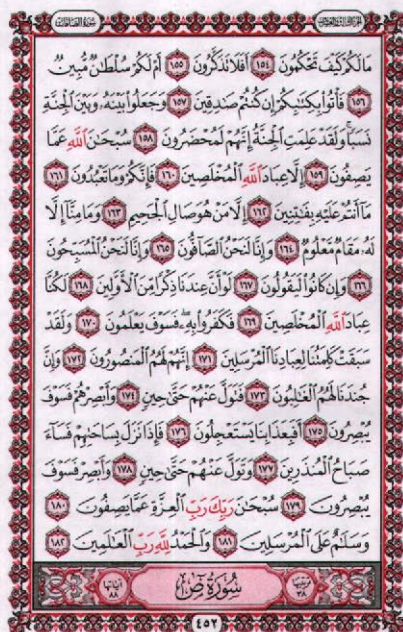 الجزء الثالث والعشرون
سورة الصافات
مَا لَكُمْ كَيْفَ تَحْكُمُونَ ١٥٤ أَفَلَا تَذَكَّرُونَ ١٥٥ أَمْ لَكُمْ سُلْطَٰنٌ مُّبِينٌ
١٥٦ فَأْتُوا۟ بِكِتَٰبِكُمْ إِن كُنتُمْ صَٰدِقِينَ ١٥٧ وَجَعَلُوا۟ بَيْنَهُۥ وَبَيْنَ ٱلْجِنَّةِ
نَسَبًا ۚ وَلَقَدْ عَلِمَتِ ٱلْجِنَّةُ إِنَّهُمْ لَمُحْضَرُونَ ١٥٨ سُبْحَٰنَ ٱللَّهِ عَمَّا
يَصِفُونَ ١٥٩ إِلَّا عِبَادَ ٱللَّهِ ٱلْمُخْلَصِينَ ١٦٠ فَإِنَّكُمْ وَمَا تَعْبُدُونَ ١٦١
مَآ أَنتُمْ عَلَيْهِ بِفَٰتِنِينَ ١٦٢ إِلَّا مَنْ هُوَ صَالِ ٱلْجَحِيمِ ١٦٣ وَمَا مِنَّآ إِلَّا
لَهُۥ مَقَامٌ مَّعْلُومٌ ١٦٤ وَإِنَّا لَنَحْنُ ٱلصَّآفُّونَ ١٦٥ وَإِنَّا لَنَحْنُ ٱلْمُسَبِّحُونَ
١٦٦ وَإِن كَانُوا۟ لَيَقُولُونَ ١٦٧ لَوْ أَنَّ عِندَنَا ذِكْرًا مِّنَ ٱلْأَوَّلِينَ ١٦٨ لَكُنَّا
عِبَادَ ٱللَّهِ ٱلْمُخْلَصِينَ ١٦٩ فَكَفَرُوا۟ بِهِۦ ۖ فَسَوْفَ يَعْلَمُونَ ١٧٠ وَلَقَدْ
سَبَقَتْ كَلِمَتُنَا لِعِبَادِنَا ٱلْمُرْسَلِينَ ١٧١ إِنَّهُمْ لَهُمُ ٱلْمَنصُورُونَ ١٧٢ وَإِنَّ
جُندَنَا لَهُمُ ٱلْغَٰلِبُونَ ١٧٣ فَتَوَلَّ عَنْهُمْ حَتَّىٰ حِينٍ ١٧٤ وَأَبْصِرْهُمْ فَسَوْفَ
يُبْصِرُونَ ١٧٥ أَفَبِعَذَابِنَا يَسْتَعْجِلُونَ ١٧٦ فَإِذَا نَزَلَ بِسَاحَتِهِمْ فَسَآءَ
صَبَاحُ ٱلْمُنذَرِينَ ١٧٧ وَتَوَلَّ عَنْهُمْ حَتَّىٰ حِينٍ ١٧٨ وَأَبْصِرْ فَسَوْفَ
يُبْصِرُونَ ١٧٩ سُبْحَٰنَ رَبِّكَ رَبِّ ٱلْعِزَّةِ عَمَّا يَصِفُونَ ١٨٠
وَسَلَٰمٌ عَلَى ٱلْمُرْسَلِينَ ١٨١ وَٱلْحَمْدُ لِلَّهِ رَبِّ ٱلْعَٰلَمِينَ ١٨٢
ترتيبها ٣٨ سُورَةُ صٓ آياتها ٨٨
٤٥٢